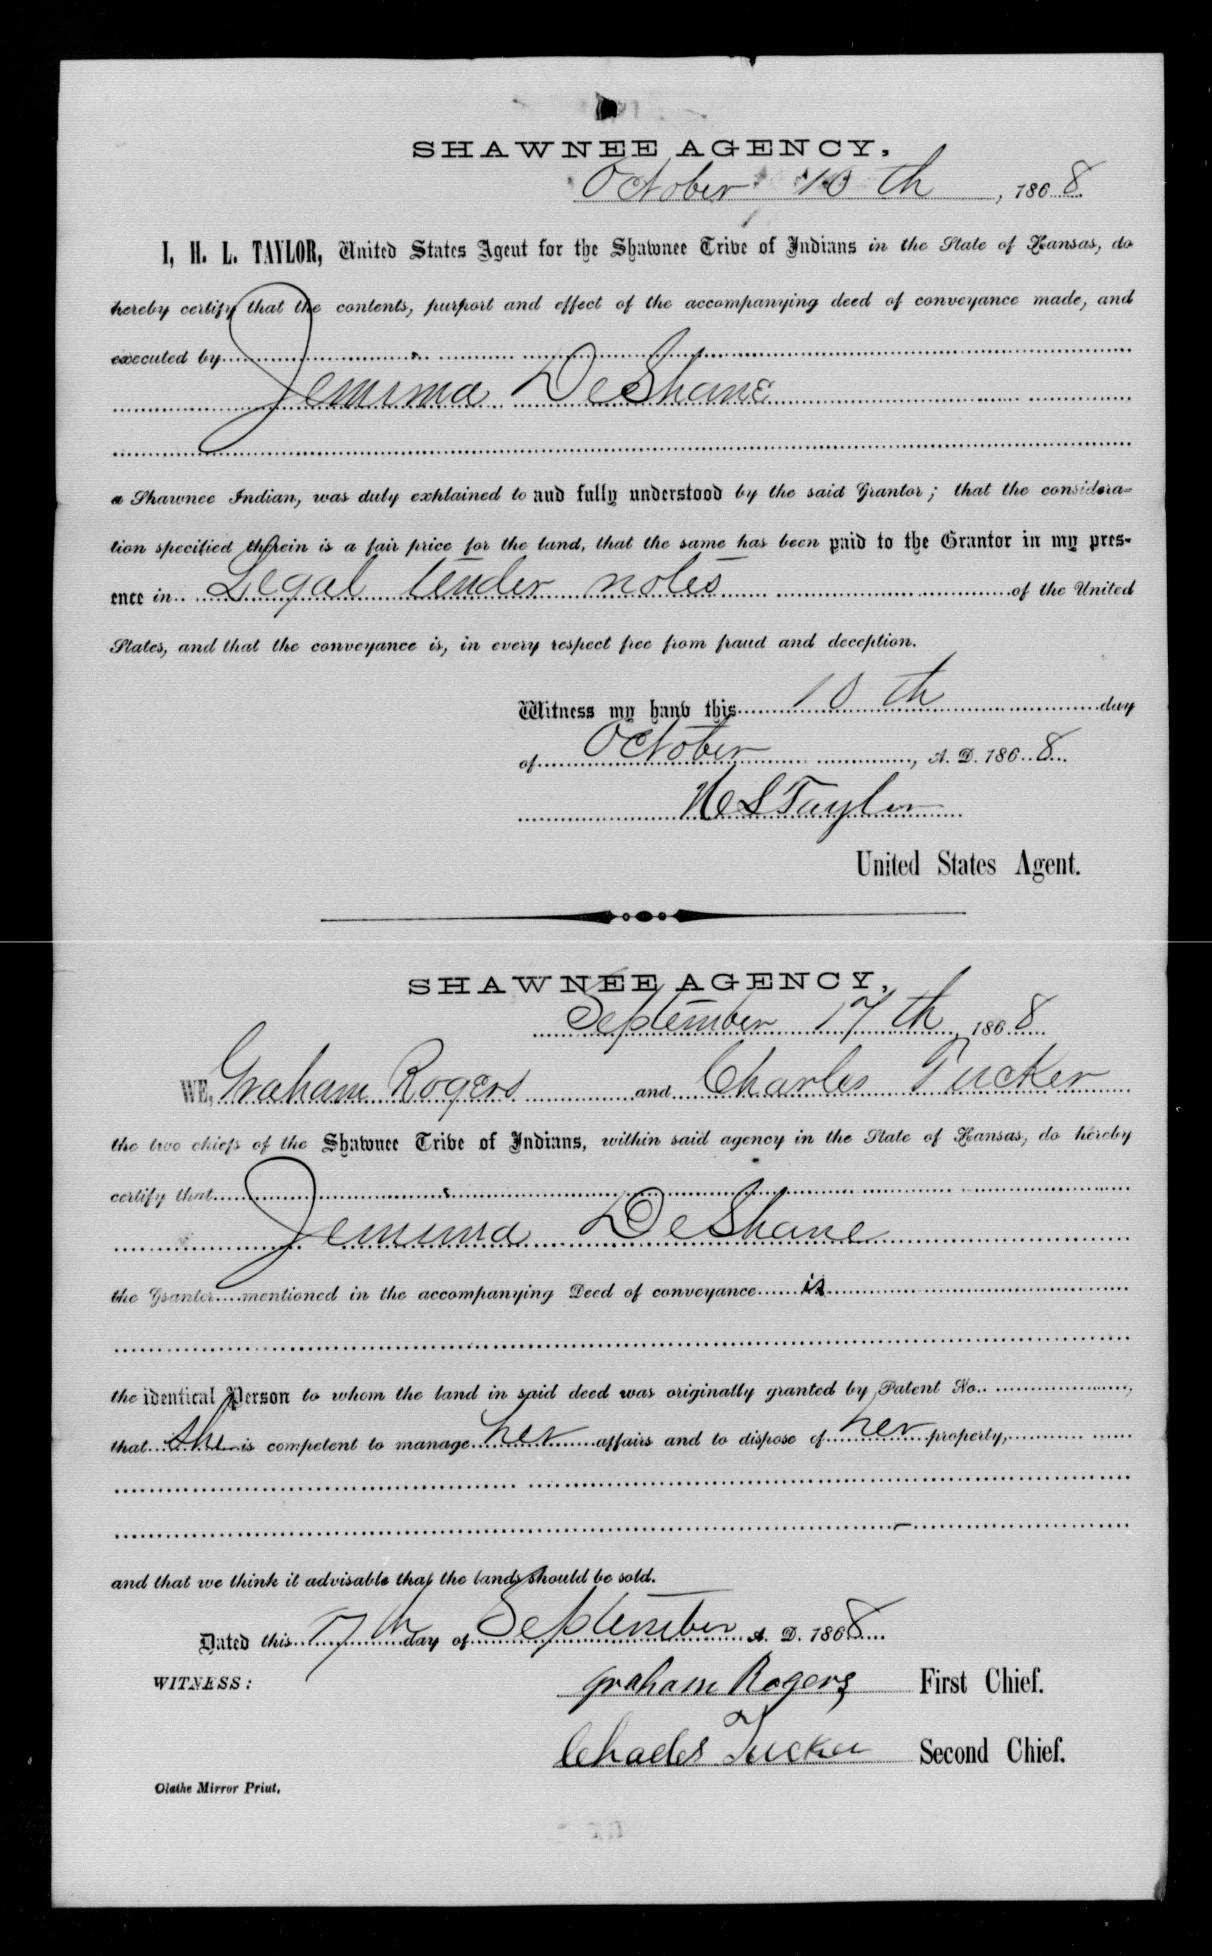 SHAWNEE AGENCY,
October 10 th, 1868
I, H. L. TAYLOR, United States Agent for the Shawnee Tribe of Indians in the State of Kansas, do
hereby certify that the contents, purport and effect of the accompanying deed of conveyance made, and
executed by
Jemima DeShane
a Shawnee Indian, was duly explained to and fully understood by the said Grantor; that the considera-
tion specified therein is a fair price for the land, that the same has been paid to the Grantor in my pres-
ence in Legal tender notes of the United
States, and that the conveyance is, in every respect free from fraud and deception.
Witness my hand this 10 th day
of October, A. D. 1868
H L Taylor
United States Agent.
SHAWNEE AGENCY,
September 17 th, 1868
WE, Graham Rogers and Charles Tucker
the two chiefs of the Shawnee Tribe of Indians, within said agency in the State of Kansas, do hereby
certify that
Jemima DeShane
the Grantor mentioned in the accompanying Deed of conveyance is
the identical Person to whom the land in said deed was originally granted by Patent No.
that she is competent to manage her affairs and to dispose of her property,
and that we think it advisable that the lands should be sold.
Dated this 17th day of September A. D. 1868
WITNESS:
Graham Rogers First Chief.
Charles Tucker Second Chief.
Olathe Mirror Print.